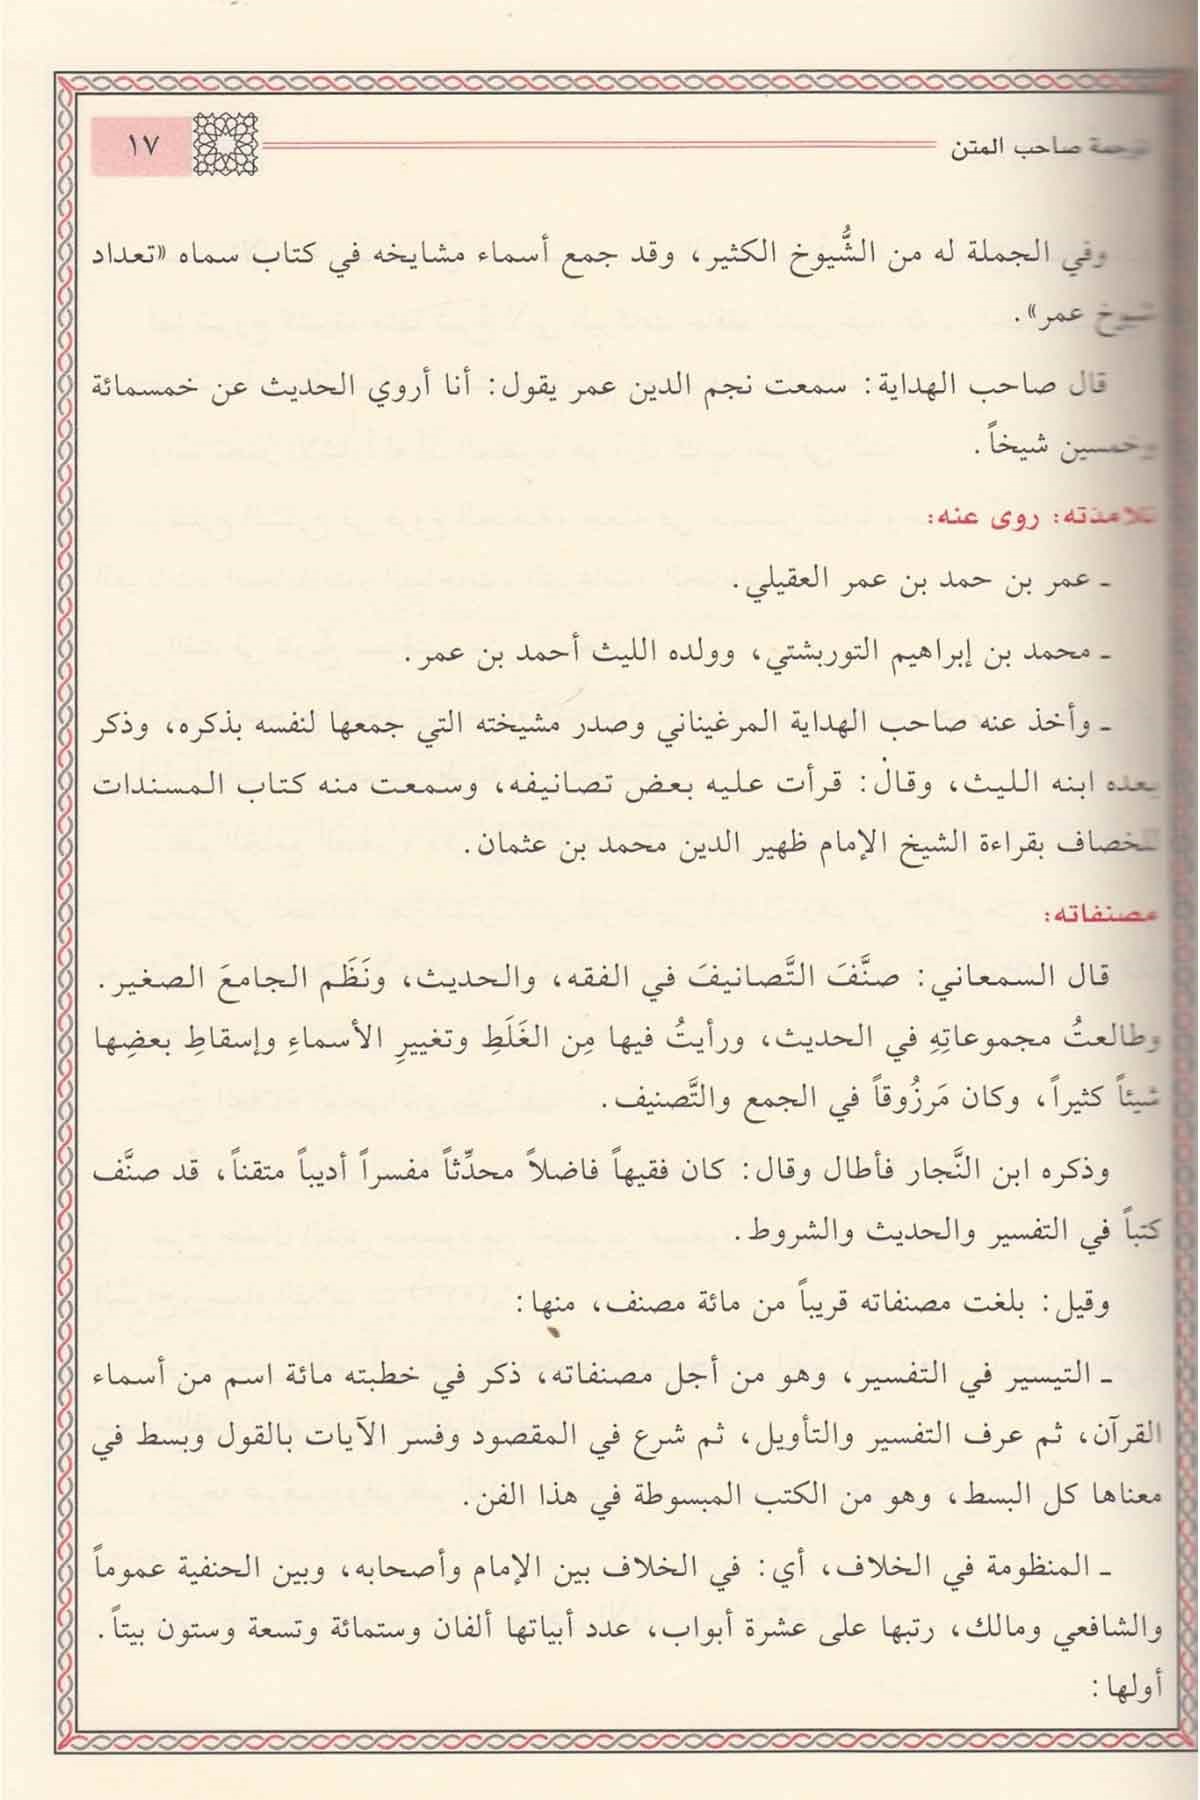 ترجمة صاحب المتن
١٧
وفي الجملة له من الشُّيوخ الكثير، وقد جمع أسماء مشايخه في كتاب سماه «تعداد
شيوخ عمر».
قال صاحب الهداية: سمعت نجم الدين عمر يقول: أنا أروي الحديث عن خمسمائة
وخمسين شيخاً.
تلامذته: روى عنه:
ـ عمر بن حمد بن عمر العقيلي.
ـ محمد بن إبراهيم التوربشتي، وولده الليث أحمد بن عمر.
ـ وأخذ عنه صاحب الهداية المرغيناني وصدر مشيخته التي جمعها لنفسه بذكره، وذكر
بعده ابنه الليث، وقال: قرأت عليه بعض تصانيفه، وسمعت منه كتاب المسندات
للخصاف بقراءة الشيخ الإمام ظهير الدين محمد بن عثمان.
مصنفاته:
قال السمعاني: صنَّفَ التَّصانيفَ في الفقه، والحديث، ونَظَم الجامعَ الصغير.
وطالعتُ مجموعاتِهِ في الحديث، ورأيتُ فيها مِن الغَلَطِ وتغييرِ الأسماءِ وإسقاطِ بعضِها
شيئاً كثيراً، وكان مَرزُوقاً في الجمع والتَّصنيف.
وذكره ابن النَّجار فأطال وقال: كان فقيهاً فاضلاً محدِّثاً مفسراً أديباً متقناً، قد صنَّف
كتباً في التفسير والحديث والشروط.
وقيل: بلغت مصنفاته قريباً من مائة مصنف، منها:
ـ التيسير في التفسير، وهو من أجل مصنفاته، ذكر في خطبته مائة اسم من أسماء
القرآن، ثم عرف التفسير والتأويل، ثم شرع في المقصود وفسر الآيات بالقول وبسط في
معناها كل البسط، وهو من الكتب المبسوطة في هذا الفن.
ـ المنظومة في الخلاف، أي: في الخلاف بين الإمام وأصحابه، وبين الحنفية عموماً
والشافعي ومالك، رتبها على عشرة أبواب، عدد أبياتها ألفان وستمائة وتسعة وستون بيتاً.
أولها: